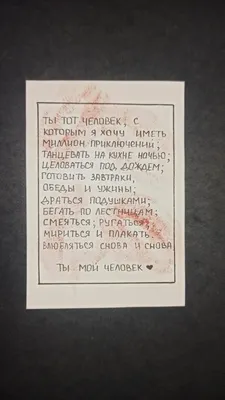 ТЫ ТОТ ЧЕЛОВЕК, С
КОТОРЫМ Я ХОЧУ ИМЕТЬ
МИЛЛИОН ПРИКЛЮЧЕНИЙ;
ТАНЦЕВАТЬ НА КУХНЕ НОЧЬЮ;
ЦЕЛОВАТЬСЯ ПОД ДОЖДЕМ;
ГОТОВИТЬ ЗАВТРАКИ,
ОБЕДЫ И УЖИНЫ;
ДРАТЬСЯ ПОДУШКАМИ;
БЕГАТЬ ПО ЛЕСТНИЦАМ;
СМЕЯТЬСЯ; РУГАТЬСЯ,
МИРИТЬСЯ И ПЛАКАТЬ.
ВЛЮБЛЯТЬСЯ СНОВА И СНОВА
ТЫ МОЙ ЧЕЛОВЕК ♥